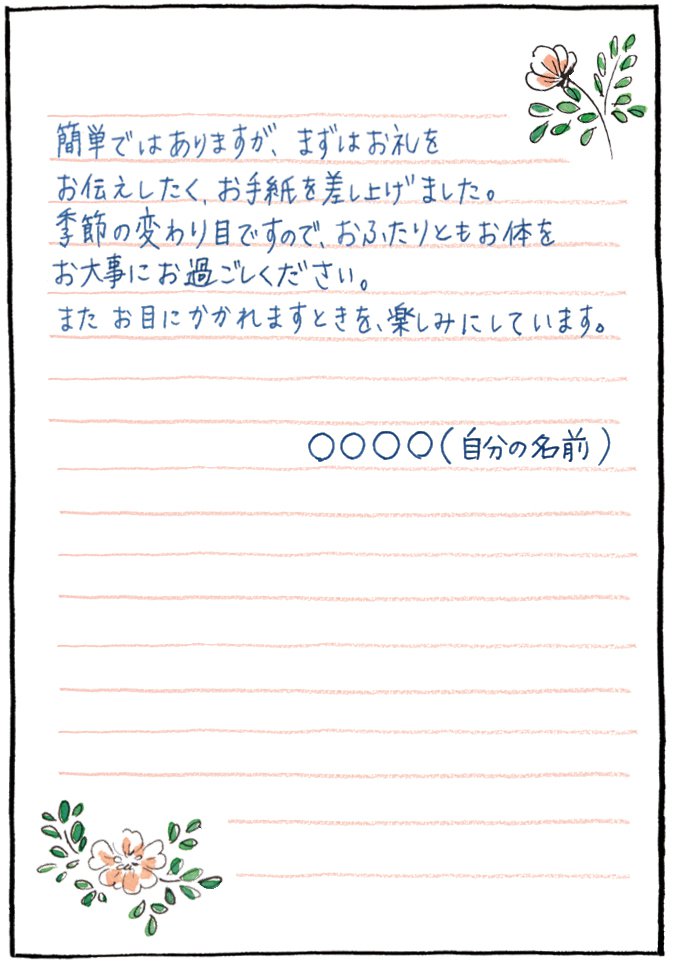 簡単ではありますが、まずはお礼を
お伝えしたく、お手紙を差し上げました。
季節の変わり目ですので、おふたりともお体を
お大事にお過ごしください。
また お目にかかれますときを、楽しみにしています。
○○○○(自分の名前)